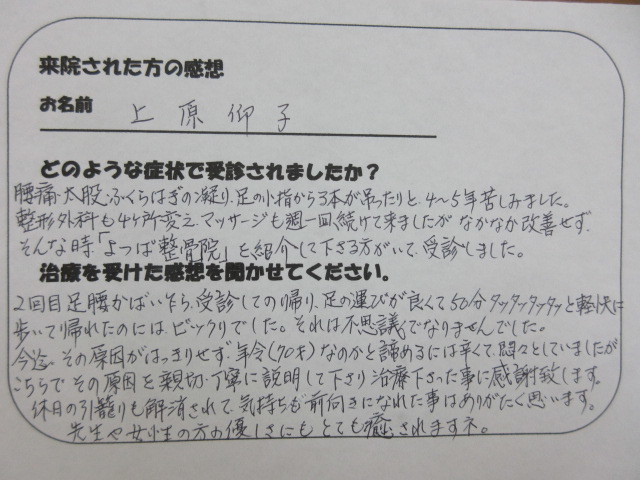 来院された方の感想
お名前 上原仰子
どのような症状で受診されましたか？
腰痛・太股・ふくらはぎの凝り、足の小指から3本が吊ったりと、4～5年苦しみました。
整形外科も4ヶ所変え、マッサージも週一回、続けて来ましたが なかなか改善せず、
そんな時、「よつば整骨院」を紹介して下さる方がいて、受診しました。
治療を受けた感想を聞かせてください。
2回目 足腰かばい乍ら、受診しての帰り、足の運びが良くて50分 タッタッタッタッと軽快に
歩いて帰れたのには ビックリでした。それは不思議でなりませんでした。
今迄、その原因がはっきりせず、年令(70キ)なのかと諦めるには辛くて、悶々としていましたが
こちらで その原因を 親切・丁寧に説明して下さり 治療下さった事に感謝致します。
休日の引籠りも解消されて、気持ちも前向きになれた事はありがたく思います。
先生や女性の方の優しさにも とても癒されますネ。